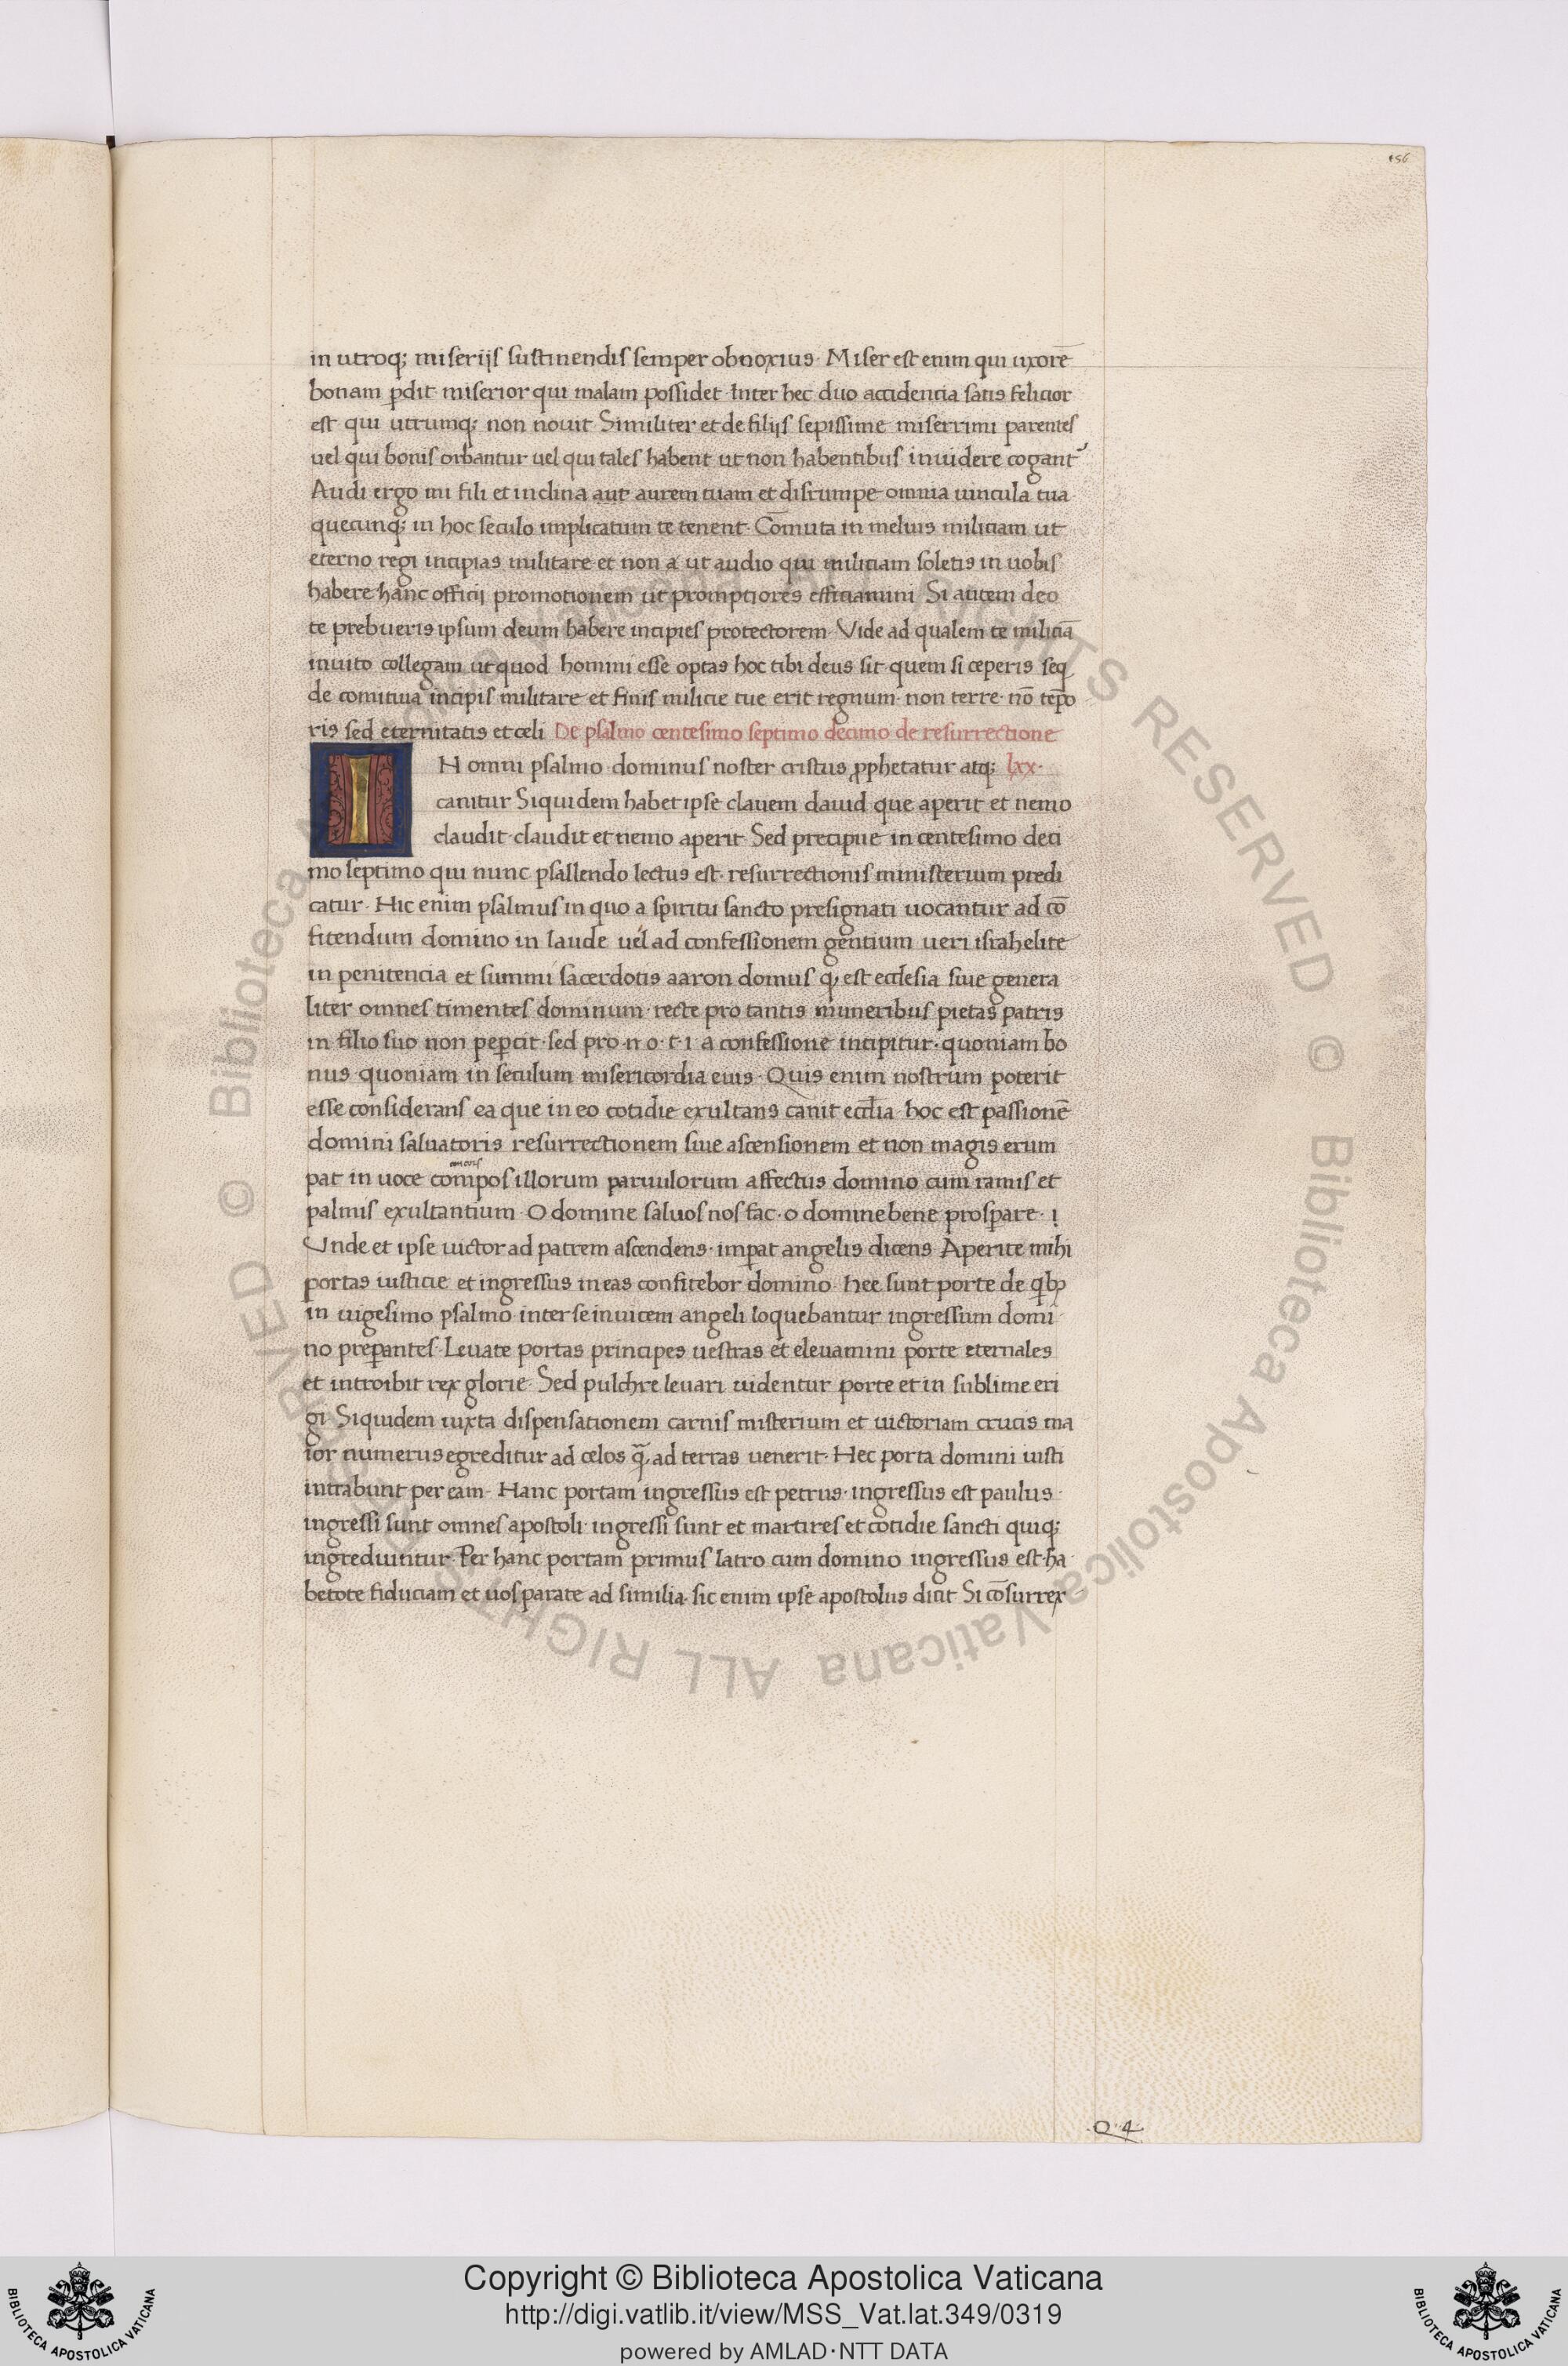 156
in utroq; miserijs sustinendis semper obnoxius · Miser est enim qui uxorē
bonam ꝑdit miserior qui malam possidet · Inter hec duo accidencia satis felicior
est qui utrumq; non nouit Similiter et de filijs sepissime miserrimi parentes
uel qui bonis orbantur uel qui tales habent ut non habentibus inuidere cogant᾿
Audi ergo mi fili et inclina aut aurem tuam et disrumpe omnia uincula tua
quecunq; in hoc seculo implicatum te tenent · Cōmuta in melius miliciam ut
eterno regi incipias militare et non a ut audio qui miliciam soletis in uobis
habere hanc officij promotionem ut promptiores efficiamini Si autem deo
te prebueris ipsum deum habere incipies protectorem · Vide ad qualem te miliciā
inuito collegam ut quod homini esse optas hoc tibi deus sit · quem si ceperis seq
de comitiua incipis militare et finis milicie tue erit regnum · non terre · nō tēꝑo
ris sed eternitatis et celi De psalmo centesimo septimo decimo de resurrectione
IN omni psalmo dominus noster cristus ꝓphetatur atq; lxx·
canitur Siquidem habet ipse clauem dauid que aperit et nemo
claudit · claudit et nemo aperit · Sed precipue in centesimo deci
mo septimo qui nunc psallendo lectus est · resurrectionis ministerium predi
catur · Hic enim psalmus in quo a spiritu sancto presignati uocantur ad cō
fitendum domino in laude uel ad confessionem gentium ueri israhelite
in penitencia et summi sacerdotis aaron domus q, est ecclesia siue genera
liter omnes timentes dominum · recte pro tantis muneribus pietas patris
in filio suo non peꝑcit · sed pro · n · o · t · i · a confessione incipitur · quoniam bo
nus · quoniam in seculum misericordia eius · Quis enim nostrum poterit
esse considerans ea que in eo cotidie exultans canit eccl̄ia · hoc est passionē
domini saluatoris resurrectionem siue ascensionem et non magis erum
pat in uoce compos illorum paruulorum affectus domino cum ramis et
palmis exultantium · O domine saluos nos fac · o domine bene prosꝑare · i
Vnde et ipse uictor ad patrem ascendens · imꝑat angelis dicens Aperite mihi
portas iusticie et ingressus in eas confitebor domino · hee sunt porte de qibꝫ
in uigesimo psalmo inter se inuicem angeli loquebantur ingressum domi
no preꝑantes · Leuate portas principes uestras et eleuamini porte eternales
et introibit rex glorie · Sed pulchre leuari uidentur porte et in sublime eri
gi Siquidem iuxta dispensationem carnis misterium et uictoriam crucis ma
ior numerus egreditur ad celos q̄, ad terras uenerit · Hec porta domini iusti
intrabunt per eam · Hanc portam ingressus est petrus · ingressus est paulus ·
ingressi sunt omnes apostoli · ingressi sunt et martires et cotidie sancti quiq;
ingrediuntur · Per hanc portam primus latro cum domino ingressus est · ha
betote fiduciam et uos parate ad similia · sic enim ipse apostolus dicit Si cōsurrex
Q · 4 ·
© Biblioteca Apostolica Vaticana ALL RIGHTS RESERVED © Biblioteca Apostolica Vaticana ALL RIGHTS RESERVED
Copyright © Biblioteca Apostolica Vaticana
http://digi.vatlib.it/view/MSS_Vat.lat.349/0319
powered by AMLAD·NTT DATA
BIBLIOTECA APOSTOLICA VATICANA
BIBLIOTECA APOSTOLICA VATICANA